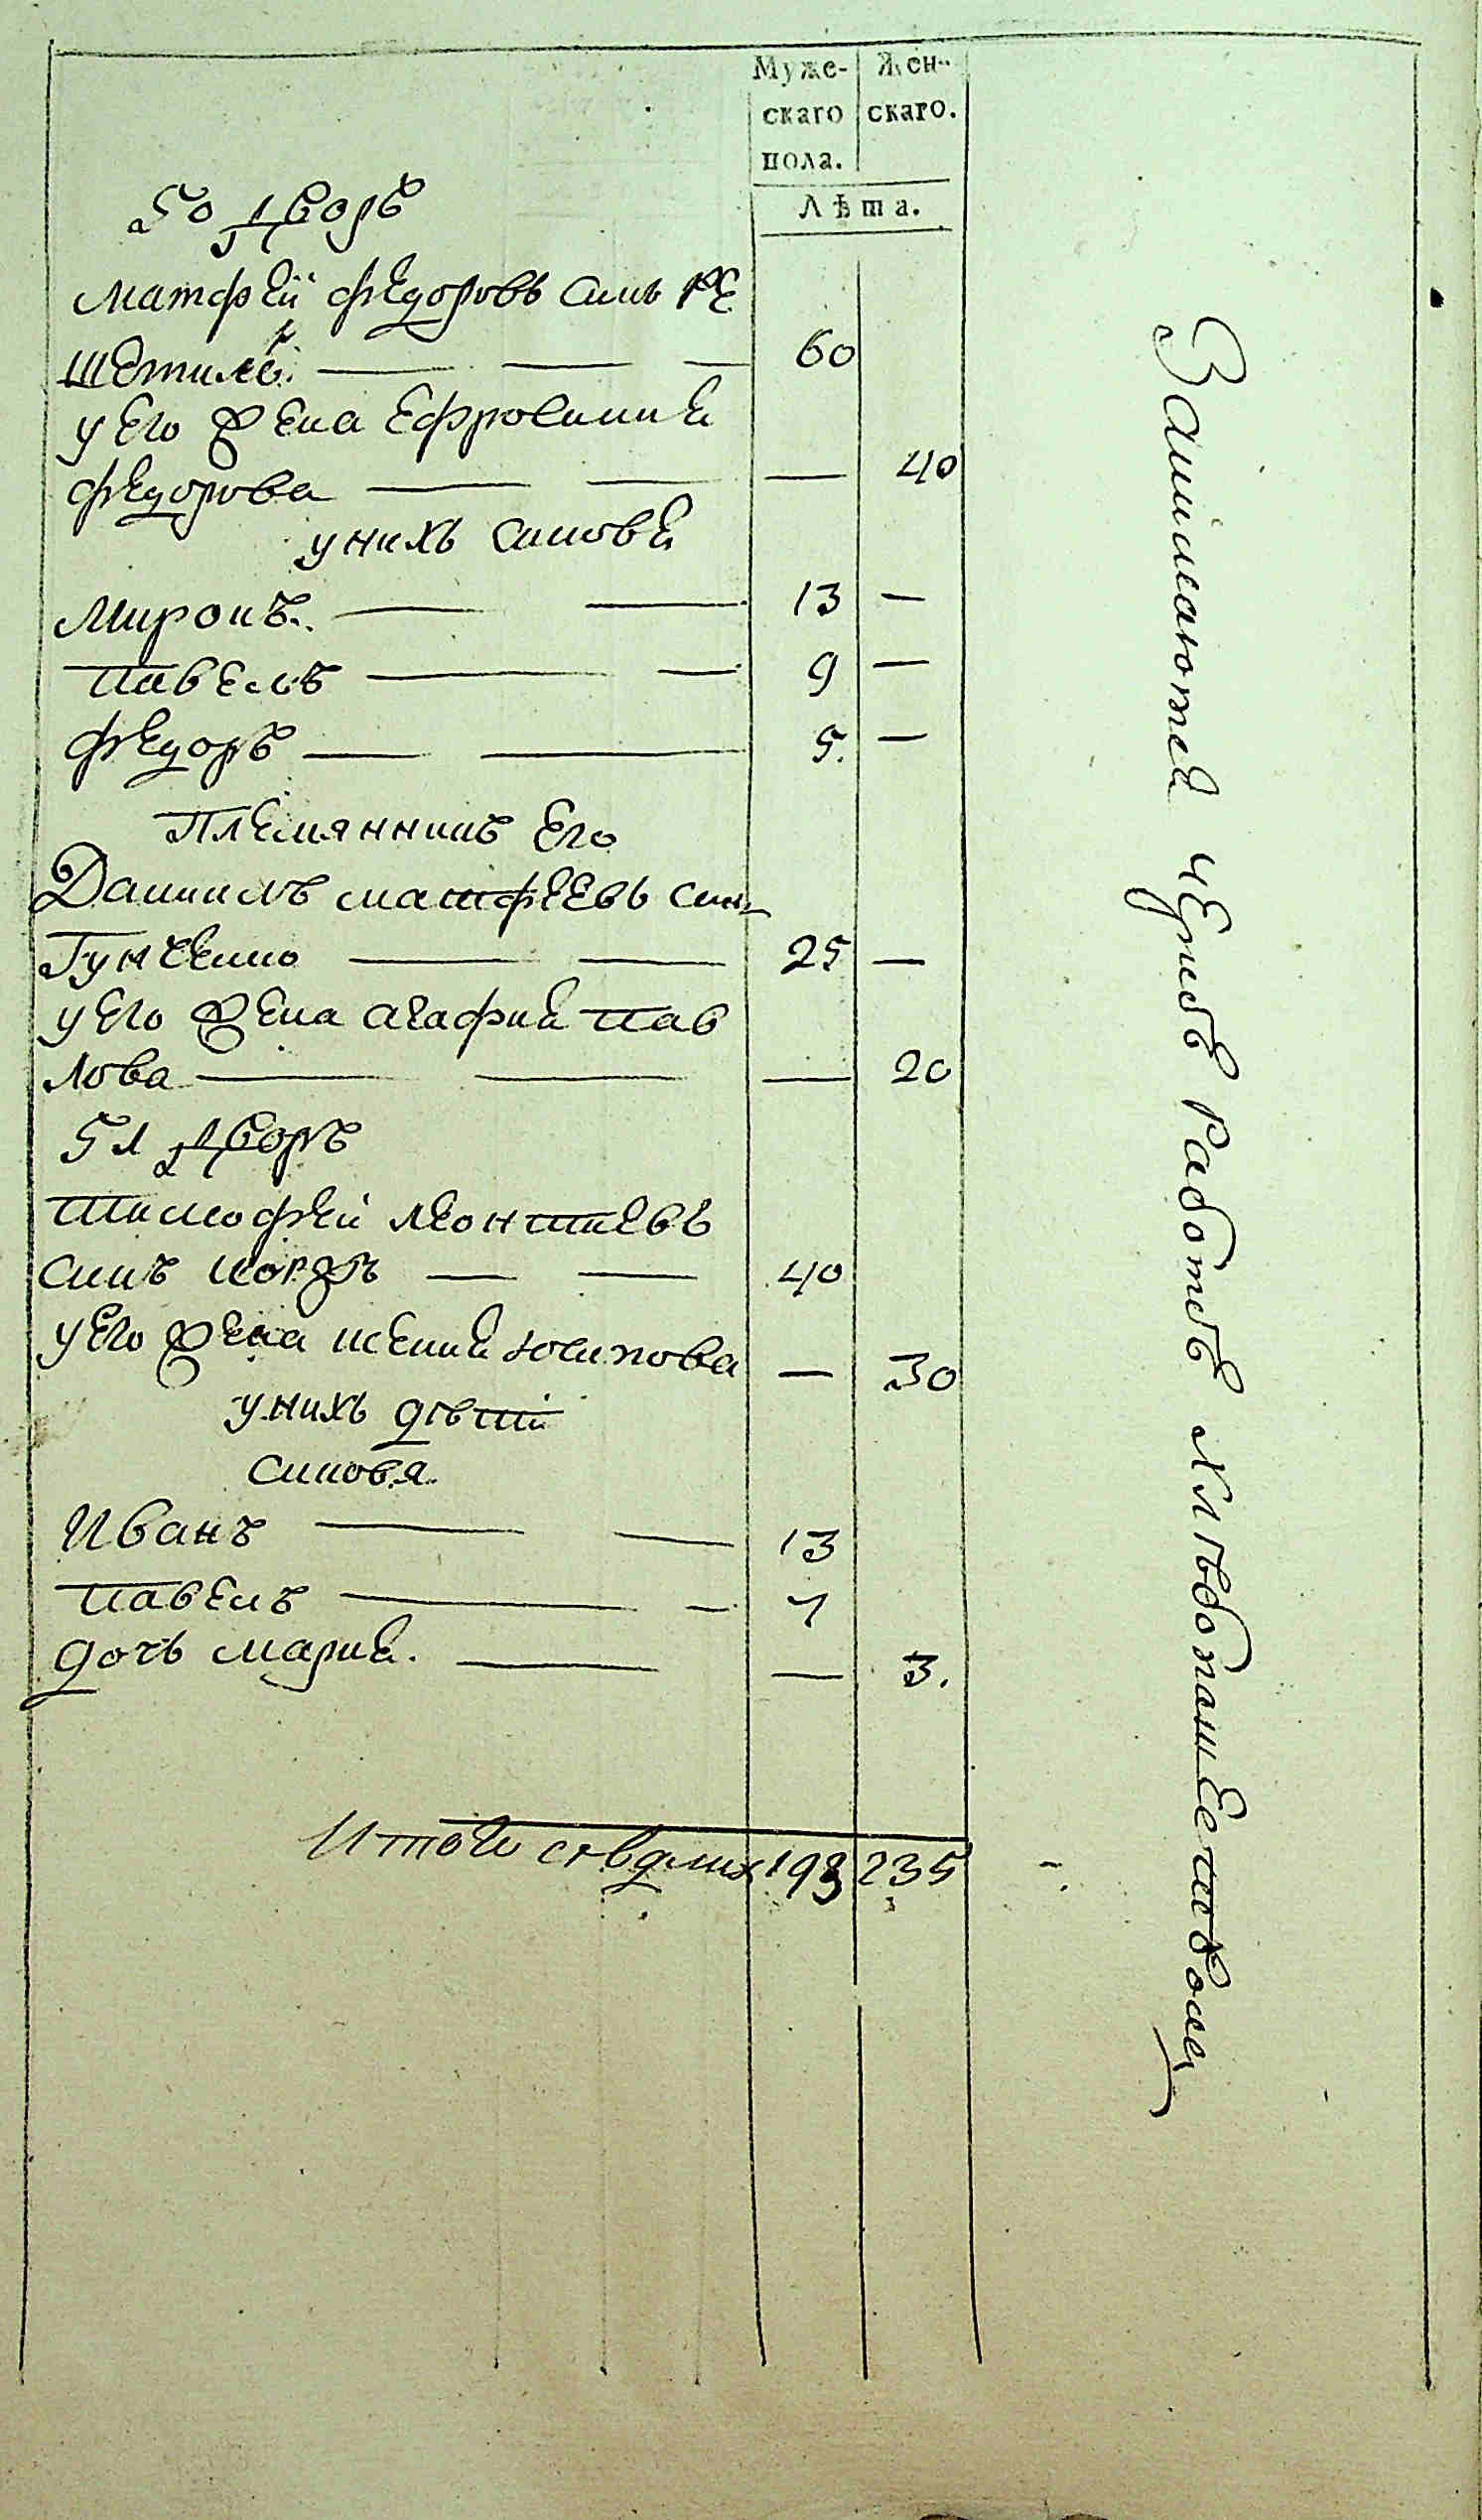 Муже- Жен-
скаго скаго.
пола.
Лѣта.
50 дворъ
Матфей Федоровъ синъ Ре
шетиле. 60
у его жена Ефросиния
Федорова — 40
у нихъ синовя
Миронъ. 13 —
Павелъ 9 —
Федоръ 5. —
Племянникъ его
Даниилъ Матфеевъ син
Гунченко 25 —
у его жена Агафия Пав
лова — 20
51 дворъ
Тимофей Леонтиевъ
синъ Коржъ 40
у его жена Ксения Юсипова — 30
у нихъ дѣти
синовя
Иванъ 13
Павелъ 7
дочъ Мария. — 3.
Итого 193 235
Занимаютея чернов работов хлебопашественой